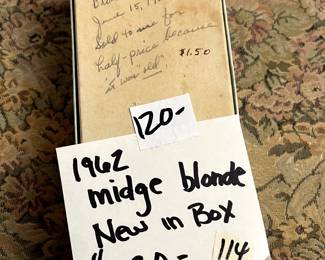 June 15, 19
Sold to me for
half-price because
$1.50
it was old"
120-
1962
midge blonde
New in Box
114